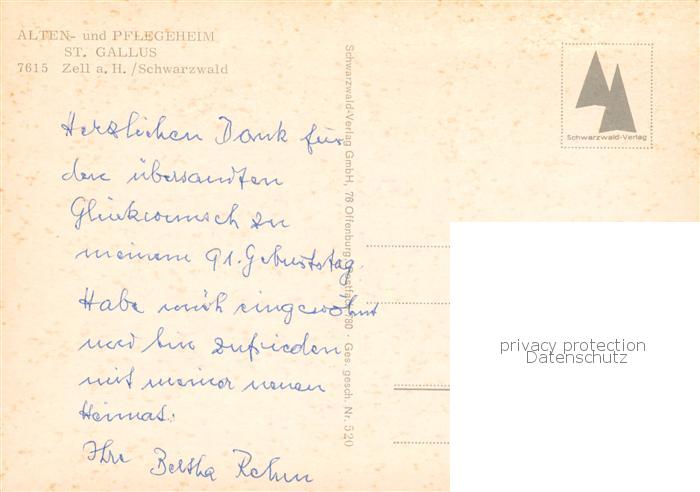 ALTEN- und PFLEGEHEIM
ST. GALLUS
7615 Zell a. H. /Schwarzwald
Herzlichen Dank für
den übersandten
Glückwunsch zu
meinem 91. Geburtstag.
Habe mich eingewöhnt
und bin zufrieden
mit meiner neuen
Heimat.
Ihre Bertha Rehm
Schwarzwald-Verlag GmbH, 76 Offenburg, Postfach 780 · Ges. gesch. Nr. 520
Schwarzwald-Verlag
privacy protection
Datenschutz